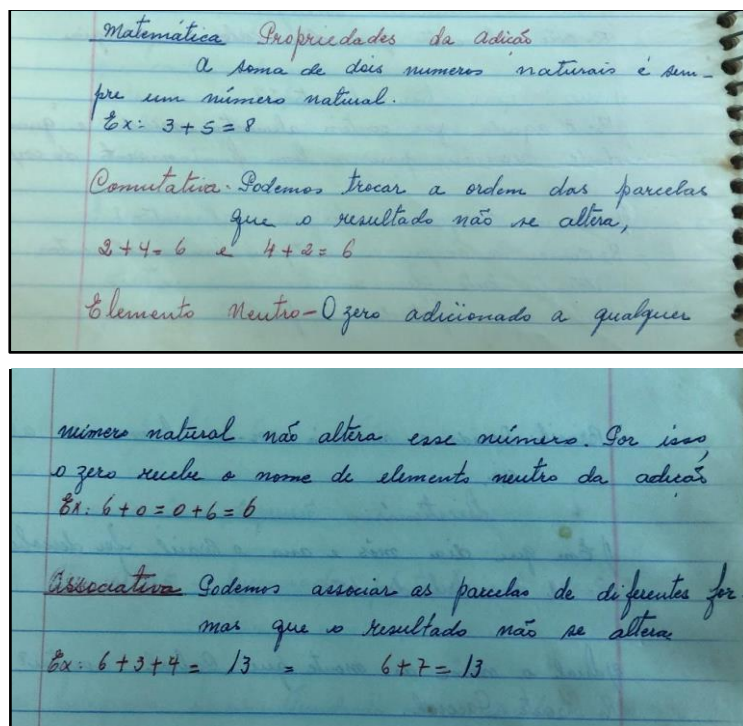 Matemática Propriedades da adição
A soma de dois numeros naturais é sem-
pre um número natural.
Ex: 3 + 5 = 8
Comutativa - Podemos trocar a ordem das parcelas
que o resultado não se altera,
2 + 4 = 6 e 4 + 2 = 6
Elemento Neutro - O zero adicionado a qualquer
número natural não altera esse número. Por isso,
o zero recebe o nome de elemento neutro da adição
Ex: 6 + 0 = 0 + 6 = 6
Associativa Podemos associar as parcelas de diferentes for
mas que o resultado não se altera
Ex: 6 + 3 + 4 = 13 = 6 + 7 = 13